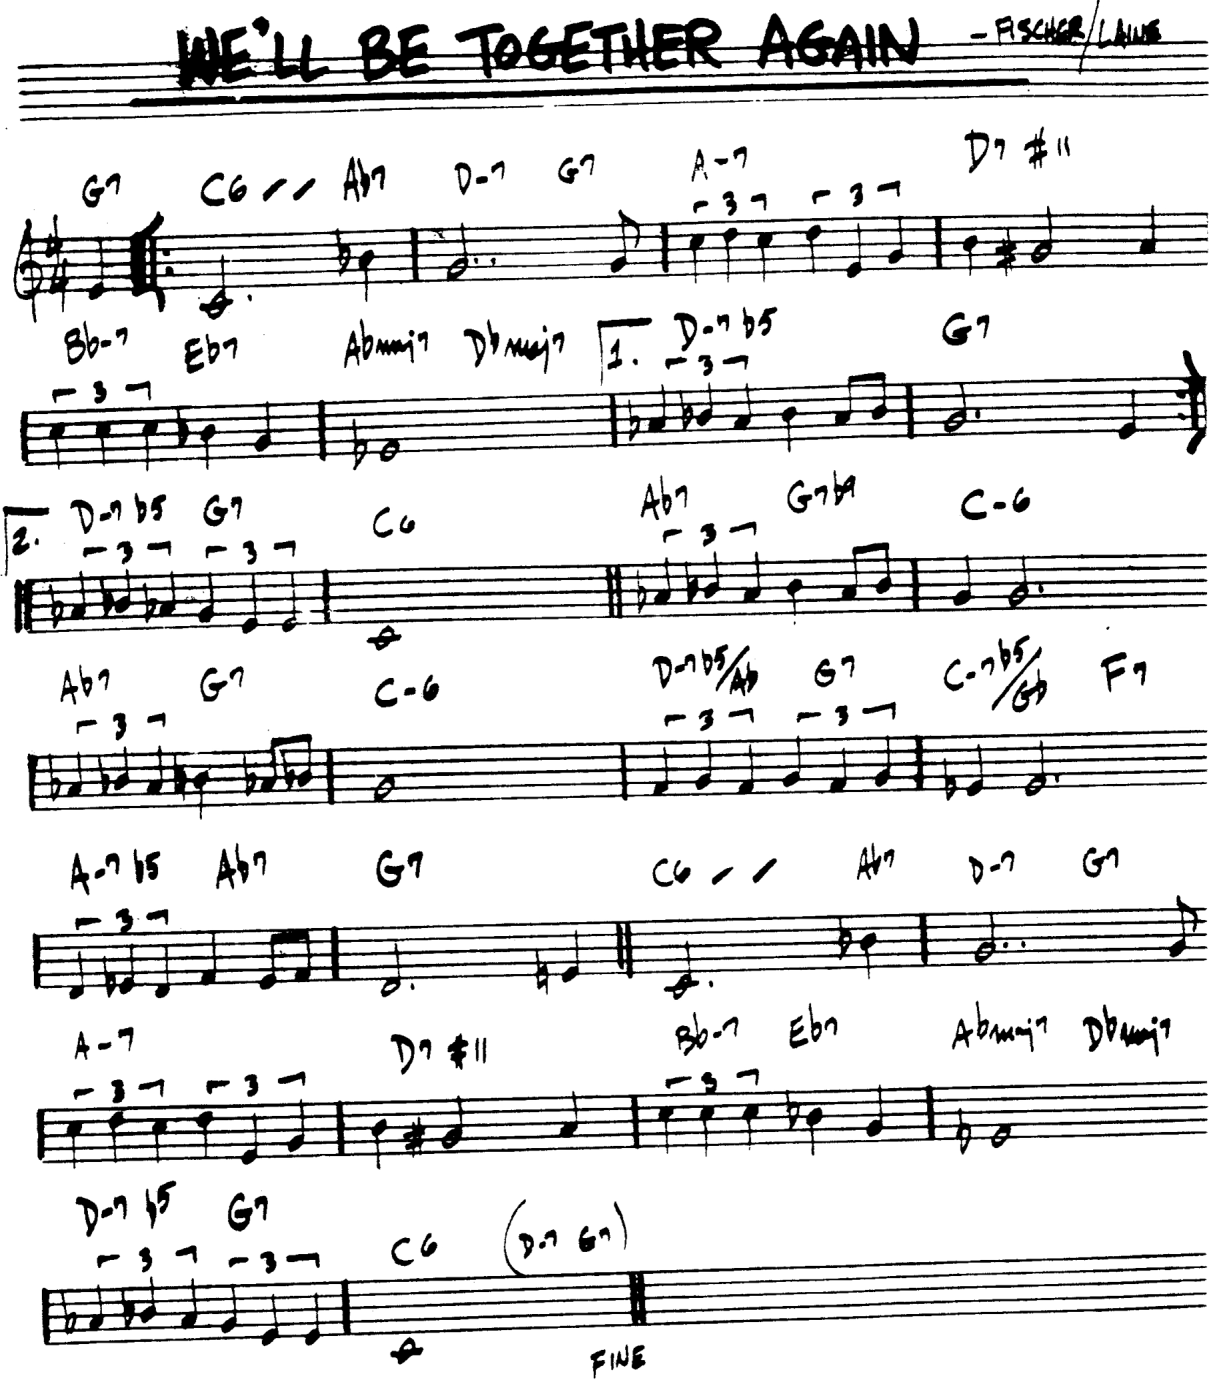 WE'LL BE TOGETHER AGAIN - FISCHER/LAINE
G7 C6 // Ab7 D-7 G7 A-7 D7 #11
3 3
Bb-7 Eb7 Abmaj7 Dbmaj7 1. D-7b5 G7
3 3
2. D-7b5 G7 C6 Ab7 G7b9 C-6
3 3 3
Ab7 G7 C-6 D-7b5/Ab G7 C-7b5/Gb F7
3 3 3
A-7b5 Ab7 G7 C6 // Ab7 D-7 G7
3
A-7 D7 #11 Bb-7 Eb7 Abmaj7 Dbmaj7
3 3 3
D-7 b5 G7 C6 (D-7 G7)
3 3
FINE